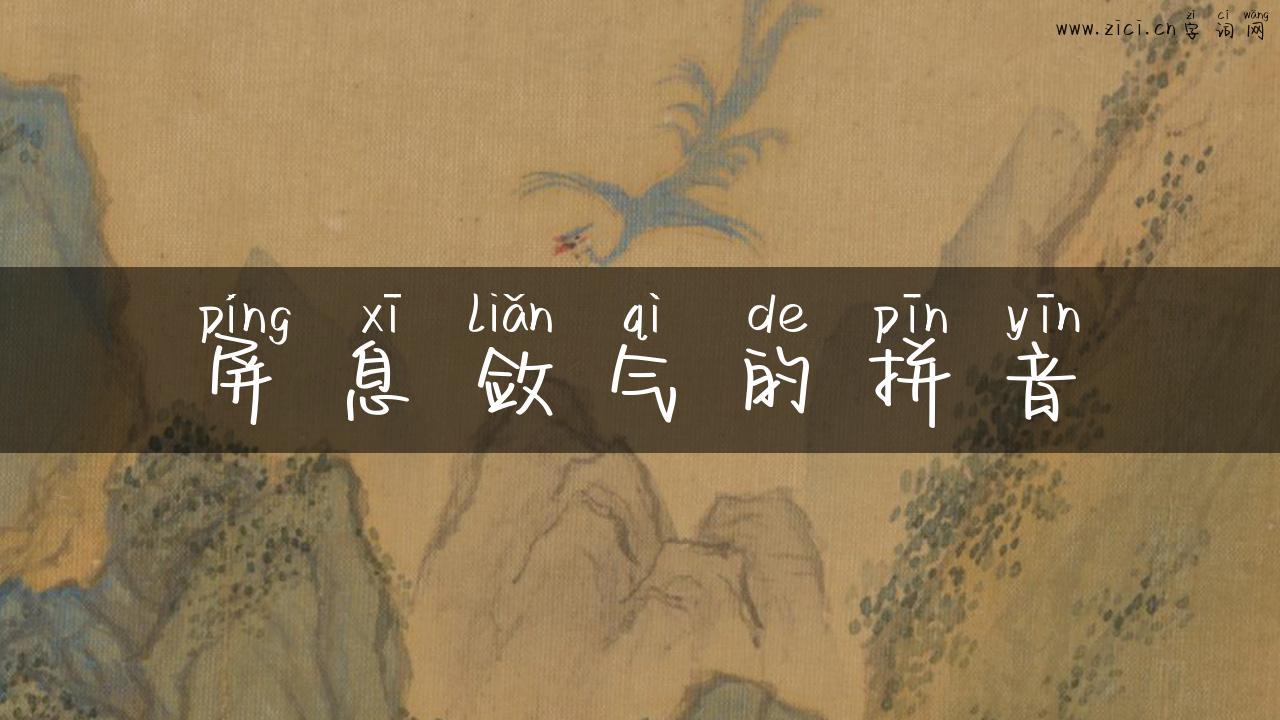 zì cí wǎng
www.zici.cn字词网
píng xī liǎn qì de pīn yīn
屏息敛气的拼音